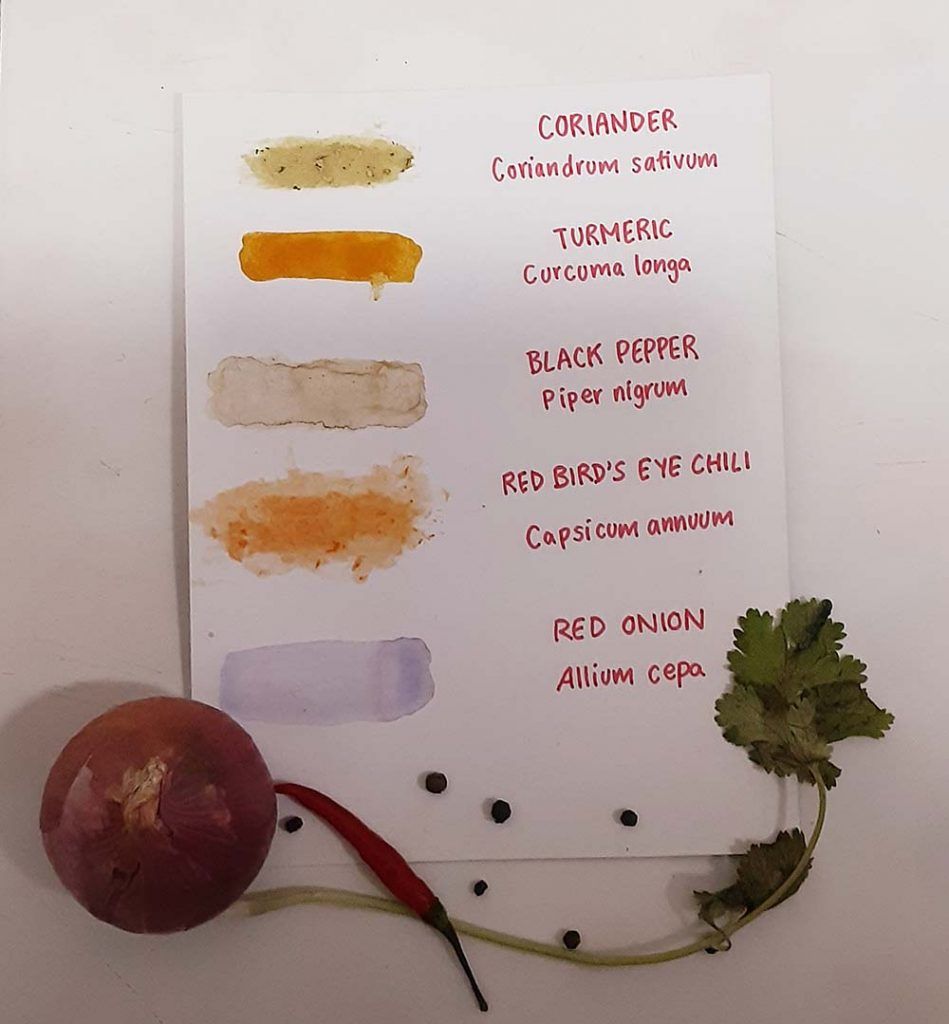 CORIANDER
Coriandrum sativum
TURMERIC
Curcuma longa
BLACK PEPPER
Piper nigrum
RED BIRD'S EYE CHILI
Capsicum annuum
RED ONION
Allium cepa